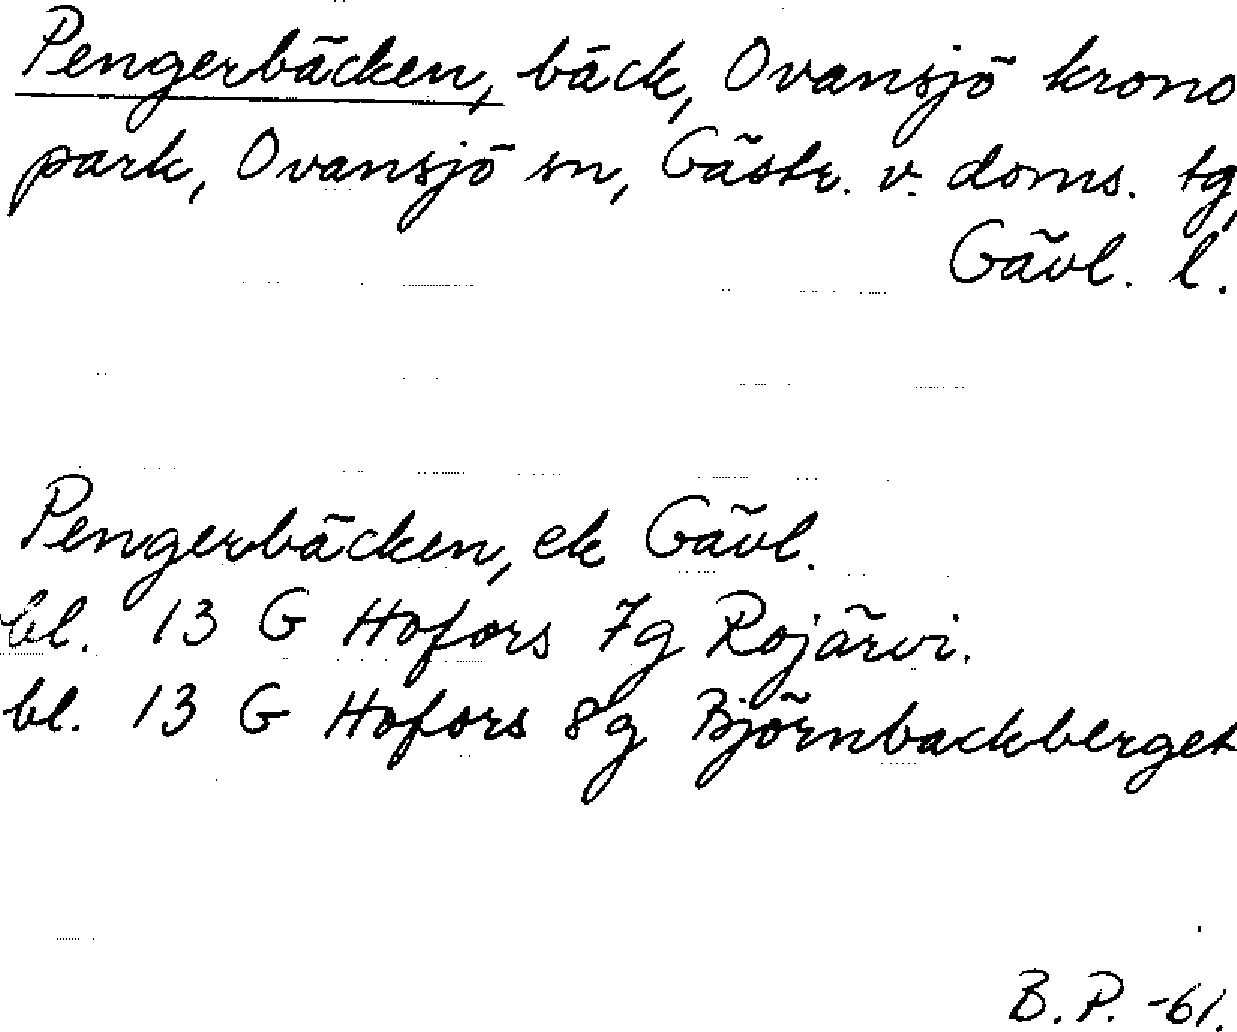 Pengerbäcken, bäck, Ovansjö krono
park, Ovansjö sn, Gästr. v. doms. tg,
Gävl. l.
Pengerbäcken, ek Gävl.
bl. 13 G Hofors 7g Rojärvi.
bl. 13 G Hofors 8g Björnbackberget
B. P. -61.